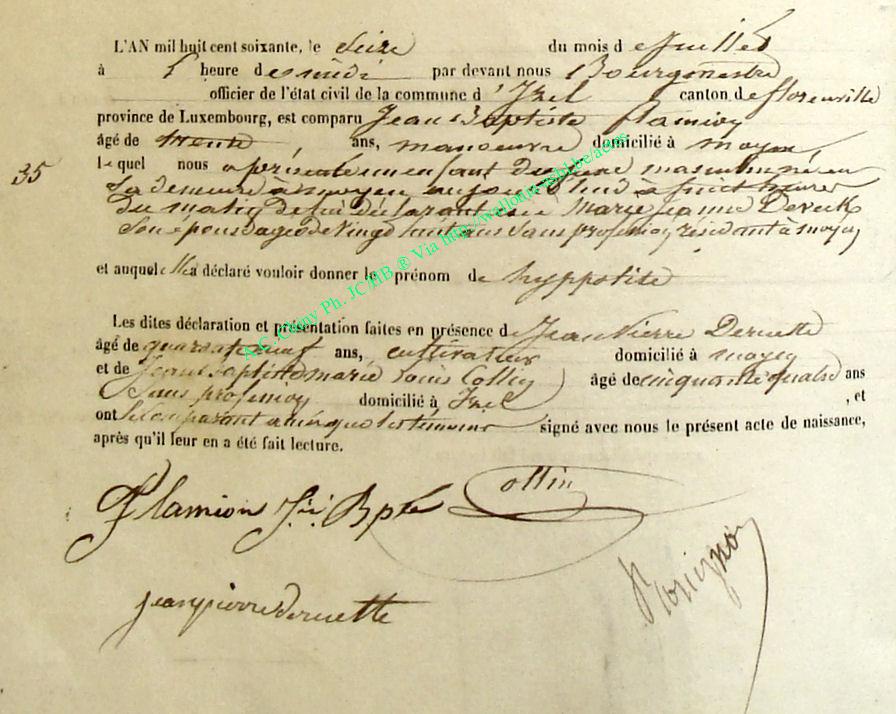 L'AN mil huit cent soixante, le Seize du mois de Juillet
à 5 heure de midi par devant nous Bourgmestre
officier de l'état civil de la commune d'Izel canton de florenville
province de Luxembourg, est comparu Jean Baptiste flamion
âgé de trente ans, manoeuvre domicilié à moyen,
35
lequel nous a présenté un enfant du sexe masculin né en
Sa demeure à moyen aujourd'hui à huit heures
du matin de lui déclarant et de Marie Jeanne
Son épouse agée de vingt huit ans Sans profession résidant à moyen
et auquel il a déclaré vouloir donner le prénom de hyppolite
Les dites déclaration et présentation faites en présence de Jean Pierre Deruette
âgé de quarante neuf ans, cultivateur domicilié à moyen
et de Jean baptiste marie Louis Collin âgé de cinquante quatre ans
Sans profession domicilié à Izel, et
ont le comparant ainsi que les témoins signé avec nous le présent acte de naissance,
après qu'il leur en a été fait lecture.
A.C. Chiny Ph. JC/HB ® Via http://wallonia-asbl.be/actes
Flamion Jn Bpte Collin
jean pierre deruette